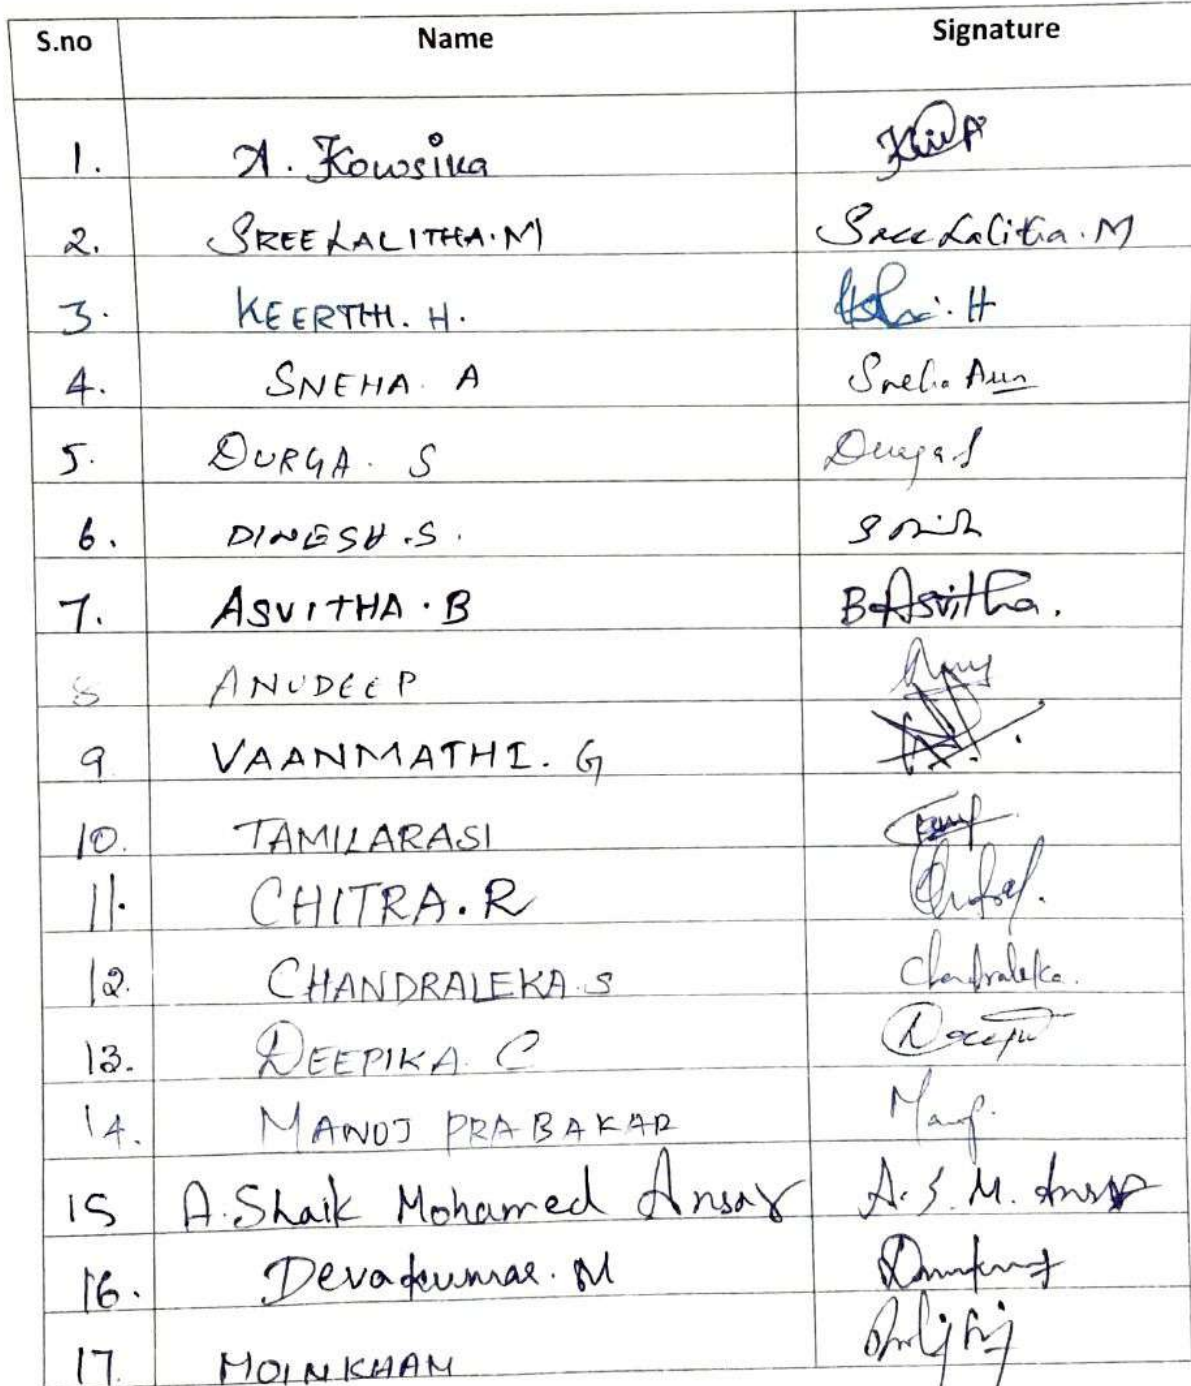 S.no Name Signature
1. A. Kowsika
2. SREE LALITHA.M Sree Lalitha.M
3. KEERTHI. H. H
4. SNEHA. A Sneha
5. DURGA. S Durga.S
6. DINESH.S.
7. ASVITHA.B B.Asvitha.
8 ANUDEEP
9 VAANMATHI. G
10. TAMILARASI
11. CHITRA.R
12. CHANDRALEKA.S Chandraleka.
13. DEEPIKA. C
14. MANOJ PRABAKAR
15 A.Shaik Mohamed Ansar A.S.M. Ansar
16. Devakumar. M
17. MOINKHAN